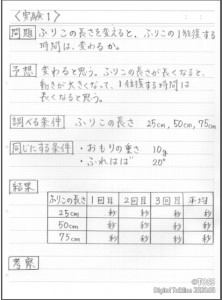 〈実験1〉
問題 ふりこの長さを変えると、ふりこの1往復する
時間は、変わるか。
予想 変わると思う。ふりこの長さが長くなると、
動きが大きくなって、1往復する時間は
長くなると思う。
調べる条件 ふりこの長さ 25cm, 50cm, 75cm
同じにする条件 ・おもりの重さ 10g
・ふれはば 20°
結果
ふりこの長さ 1回目 2回目 3回目 平均
25cm 秒 秒 秒 秒
50cm 秒 秒 秒 秒
75cm 秒 秒 秒 秒
考察